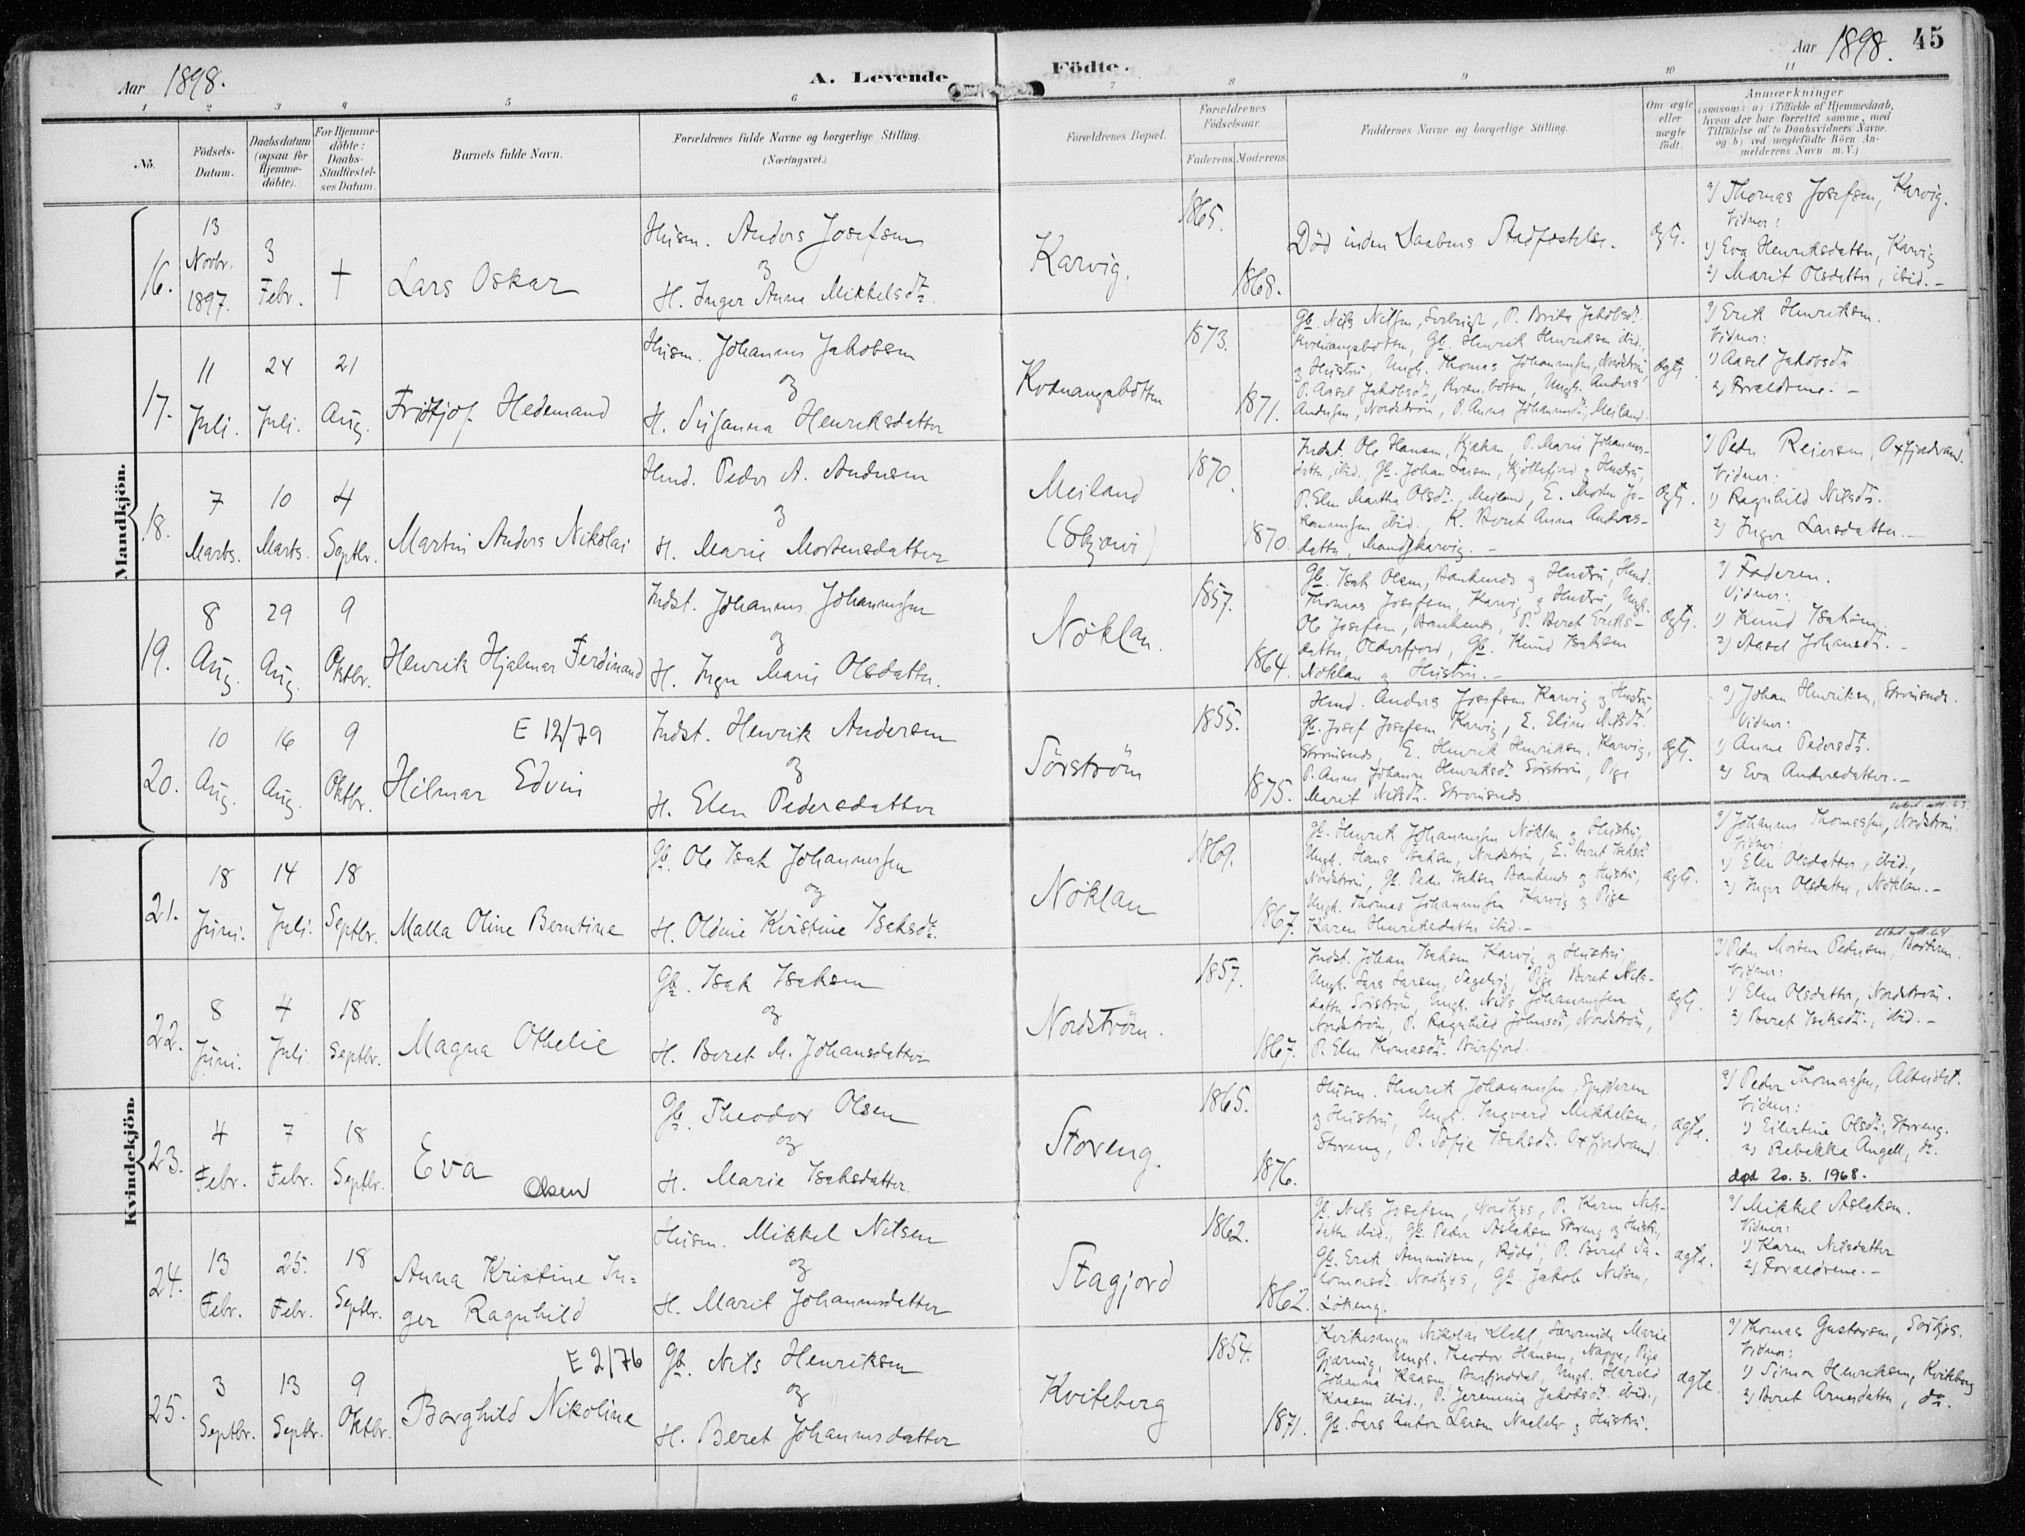 Aar 1898.
A. Levende
Födte.
Aar 1898.
45
1 2 3 4 5 6 7 8 9 10 11
No.
Födsels-
Datum.
Daabsdatum
(ogsaa for
Hjemme-
döbte).
For Hjemme-
döbte:
Daabs-
Stadfæstel-
ses Datum.
Barnets fulde Navn.
Forældrenes fulde Navne og borgerlige Stilling.
(Næringsvei.)
Forældrenes Bopæl.
Forældrenes
Födselsaar.
Faderens. Moderens.
Faddernes Navne og borgerlige Stilling.
Om ægte
eller
uægte
födt.
Anmærkninger
(saasom: a) i Tilfælde af Hjemmedaab,
hvem der har forrettet samme, med
Tilföielse af to Daabsvidners Navne.
og b) ved uægtefödte Börn An-
melderens Navn m. V.)
Mandkjön.
16.
13
Novbr.
1897.
3
Febr.
†
Lars Oskar
Husm. Anders Josefsen
og
H. Inger Anna Mikkelsdtr.
Karvig.
1865.
1868.
Död inden Daabens Stadfæstelse.
ægte.
a) Thomas Josefsen, Karvig.
Vidner:
1) Eva Henriksdatter, Karvig
2) Marit Olsdatter, ibid. -
17.
11
Juli.
24
Juli.
21
Aug.
Fridtjof Hedemand
Husm. Johannes Jakobsen
og
H. Susanna Henriksdatter
Kvænangsbotten
1873.
1871.
Gb. Nils Nilsen, P. Brita Jakobsdtr.
Kvænangsbotten, Gb. Henrik Henriksen ibid.,
og Hustru, Ungk. Thomas Johannessen, Nordström,
P. Aasel Jakobsdtr., Kvæn.botten, Ungk. Anders
Andersen, Nordström, P. Anna Johannesdtr, Meiland.
ægte.
a) Erik Henriksen.
Vidner:
1) Aasel Jakobsdtr.
2) Forældrene. -
18.
7
Marts.
10
Marts.
4
Septbr.
Martin Anders Nikolai
Hmd. Peder A. Andersen
og
H. Marie Mortensdatter
Meiland
1870.
1870.
Indst. Ole Hansen, P. Marie Johannes-
datter, ibid, Gb. Johan Larsen, Kjöllefjord og Hustru,
P. Elen Martha Olsdtr., Meiland, E. Morten Jo-
hannessen ibid., K. Beret Anna Anders-
datter,
ægte.
a) Peder Reiersen, Oxfjordvand.
Vidner:
1) Ragnhild Nilsdtr.
2) Inger Larsdatter. -
19.
8
Aug.
29
Aug.
9
Oktbr.
Henrik Hjalmar Ferdinand
Indst. Johannes Johannessen
og
H. Inger Marie Olsdatter.
Nöklan.
1857.
1864.
Gb. Isak Olsen, Bankenes og Hustru, Hmd.
Thomas Josefsen, Karvig og Hustru, Ungk.
Ole Josefsen, Bankenes, P. Beret Eriks-
datter, Olderfjord, Gb. Knud Isaksen
Nöklan og Hustru. -
ægte.
a) Faderen.
Vidner:
1) Knud Isaksen
2) Aasel Johansdtr. -
20.
10
Aug.
16
Aug.
9
Oktbr.
E 12/79
Hilmar Edvin
Indst. Henrik Andersen
og
H. Elen Pedersdatter
Sörström
1855.
1875.
Hmd. Anders Josefsen Karvig og Hustru,
Gb. Josef Josefsen Karvig, E. Eline Nilsdtr.
Strömsnes, E. Henrik Henriksen, Karvig,
P. Anne Johanne Henriksdtr Sörström, Pige
Marit Nilsdtr. Strömsnes.
ægte.
a) Johan Henriksen, Strömsnes.
Vidner:
1) Anne Pedersdtr.
2) Eva Andersdatter. -
Kvindekjön.
21.
18
Juni.
14
Juli.
18
Septbr.
Malla Oline Berntine
Gb. Ole Isak Johannessen
og
H. Oldine Kristine Isaksdtr.
Nöklan
1869.
1867.
Gb. Henrik Johannessen Nöklan og Hustru,
Ungk. Hans Isaksen, Nordström, E. Beret Isaksdtr
Nordström, Gb. Peder Isaksen Bankenes og Hustru,
Ungk. Thomas Johannessen Karvig og Pige
Karen Henriksdatter ibid. -
ægte.
a) Johannes Thomassen, Nordström.
Vidner:
1) Elen Olsdatter, ibid.,
2) Inger Olsdatter, Nöklan. -
22.
8
Juni.
4
Juli.
18
Septbr.
Magna Othelie
Gb. Isak Isaksen
og
H. Beret M. Johansdatter
Nordström.
1857.
1867.
Indst. Johan Isaksen Karvig og Hustru,
Ungk. Lars Larsen, Pige Beret Nils-
datter Sörström, Ungk. Nils Johannessen
Nordström, P. Ragnhild Johnsdtr, Nordström,
P. Elen Thomasdtr. Burfjord.
ægte.
a) Peder Morten Pedersen,
Vidner:
1) Elen Olsdatter, Nordström.
2) Beret Isaksdtr., ibid. -
23.
4
Febr.
7
Febr.
18
Septbr.
Eva
Olsen
Gb. Theodor Olsen
og
H. Marie Isaksdatter.
Storeng.
1865.
1876.
Husm. Henrik Johannessen, Spildern
og Hustru, Ungk. Ingvard Mikkelsen,
Storeng, P. Sofie Isaksdtr. Oxfjordvand.
ægte.
a) Peder Thomassen, Alteidet.
Vidner:
1) Eilertine Olsdtr., Storeng.
2) Rebekka Angell, do.
död 20. 3. 1968.
24.
13
Febr.
25.
Febr.
18
Septbr.
Anna Kristine In=
ger Ragnhild
Husm. Mikkel Nilsen
og
H. Marit Johannesdatter
Stagjord
1862.
1862.
Gb. Nils Josefsen, P. Karen Nils-
datter ibid., Gb. Peder Aslaksen Storeng og Hustru,
Gb. Erik Amundsen, Rödö, P. Beret Tho-
masdtr. Gb. Jakob Nilsen,
Lökeng.
ægte.
a) Mikkel Aslaksen.
Vidner:
1) Karen Nilsdatter
2) Forældrene. -
25.
3
Septbr.
13
Septbr.
9
Oktbr.
E 2/76
Borghild Nikoline
Gb. Nils Henriksen
og
H. Beret Johannesdatter
Kviteberg
1854.
1871.
Kirkesanger Nikolai Dahl, Lærerinde Marie
Gjærnig, Ungk. Theodor Hansen, Pige
Johanna Kaasen, Burfjorddal, Ungk. Harald
Kaasen ibid., P. Jeremine Jakobsdtr. ibid.,
Gb. Lars Anton Larsen og Hustru.
ægte.
a) Thomas Gustavsen, Sörkjos.
Vidner:
1) Simon Henriksen, Kviteberg
2) Beret Arnesdatter, do.